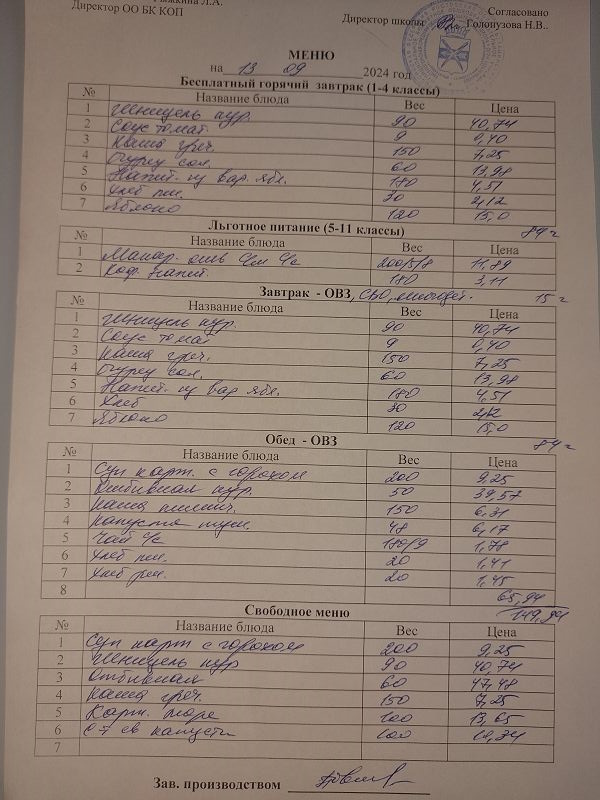 Рыжкина Л.А.
Директор ОО БК КОП
Согласовано
Директор школы Голонузова Н.В..
МЕНЮ
на 13 09 2024 год
Бесплатный горячий завтрак (1-4 классы)
№ Название блюда Вес Цена
1 Шницель кур. 90 40,74
2 Соус томат. 9 0,40
3 Каша греч. 150 7,25
4 Огурец сол. 60 13,98
5 Напит. из вар. ябл. 180 4,51
6 Хлеб пш. 30 2,12
7 Яблоко 120 15,0
84 г
Льготное питание (5-11 классы)
№ Название блюда Вес Цена
1 Макар. отв 200/5/8 11,89
2 Коф. напит. 180 3,11
15 г
Завтрак - ОВЗ, СВО,
№ Название блюда Вес Цена
1 Шницель кур. 90 40,74
2 Соус томат 9 0,40
3 Каша греч. 150 7,25
4 Огурец сол. 60 13,98
5 Напит. из вар ябл. 180 4,51
6 Хлеб 30 2,12
7 Яблоко 120 15,0
84 г
Обед - ОВЗ
№ Название блюда Вес Цена
1 Суп карт. с горохом 200 9,25
2 Отбивная кур. 50 39,57
3 Каша пшенич. 150 6,31
4 Капуста туш. 48 6,17
5 Чай с/с 180/9 1,78
6 Хлеб пш. 20 1,41
7 Хлеб рж. 20 1,45
8 65,94
149,94
Свободное меню
№ Название блюда Вес Цена
1 Суп карт с горохом 200 9,25
2 Шницель кур 90 40,74
3 Отбивная 60 47,48
4 Каша греч. 150 7,25
5 Карт. пюре 100 13,65
6 С-т св капусты 100
7
Зав. производством